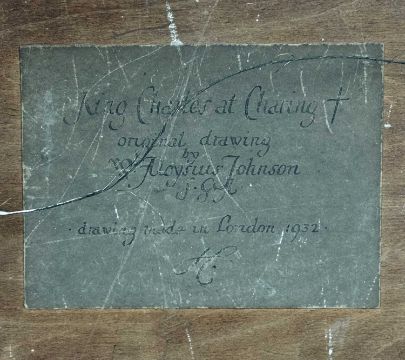 King Charles at Charing †
original drawing
by
Aloysius Johnson
· drawing made in London 1932 ·